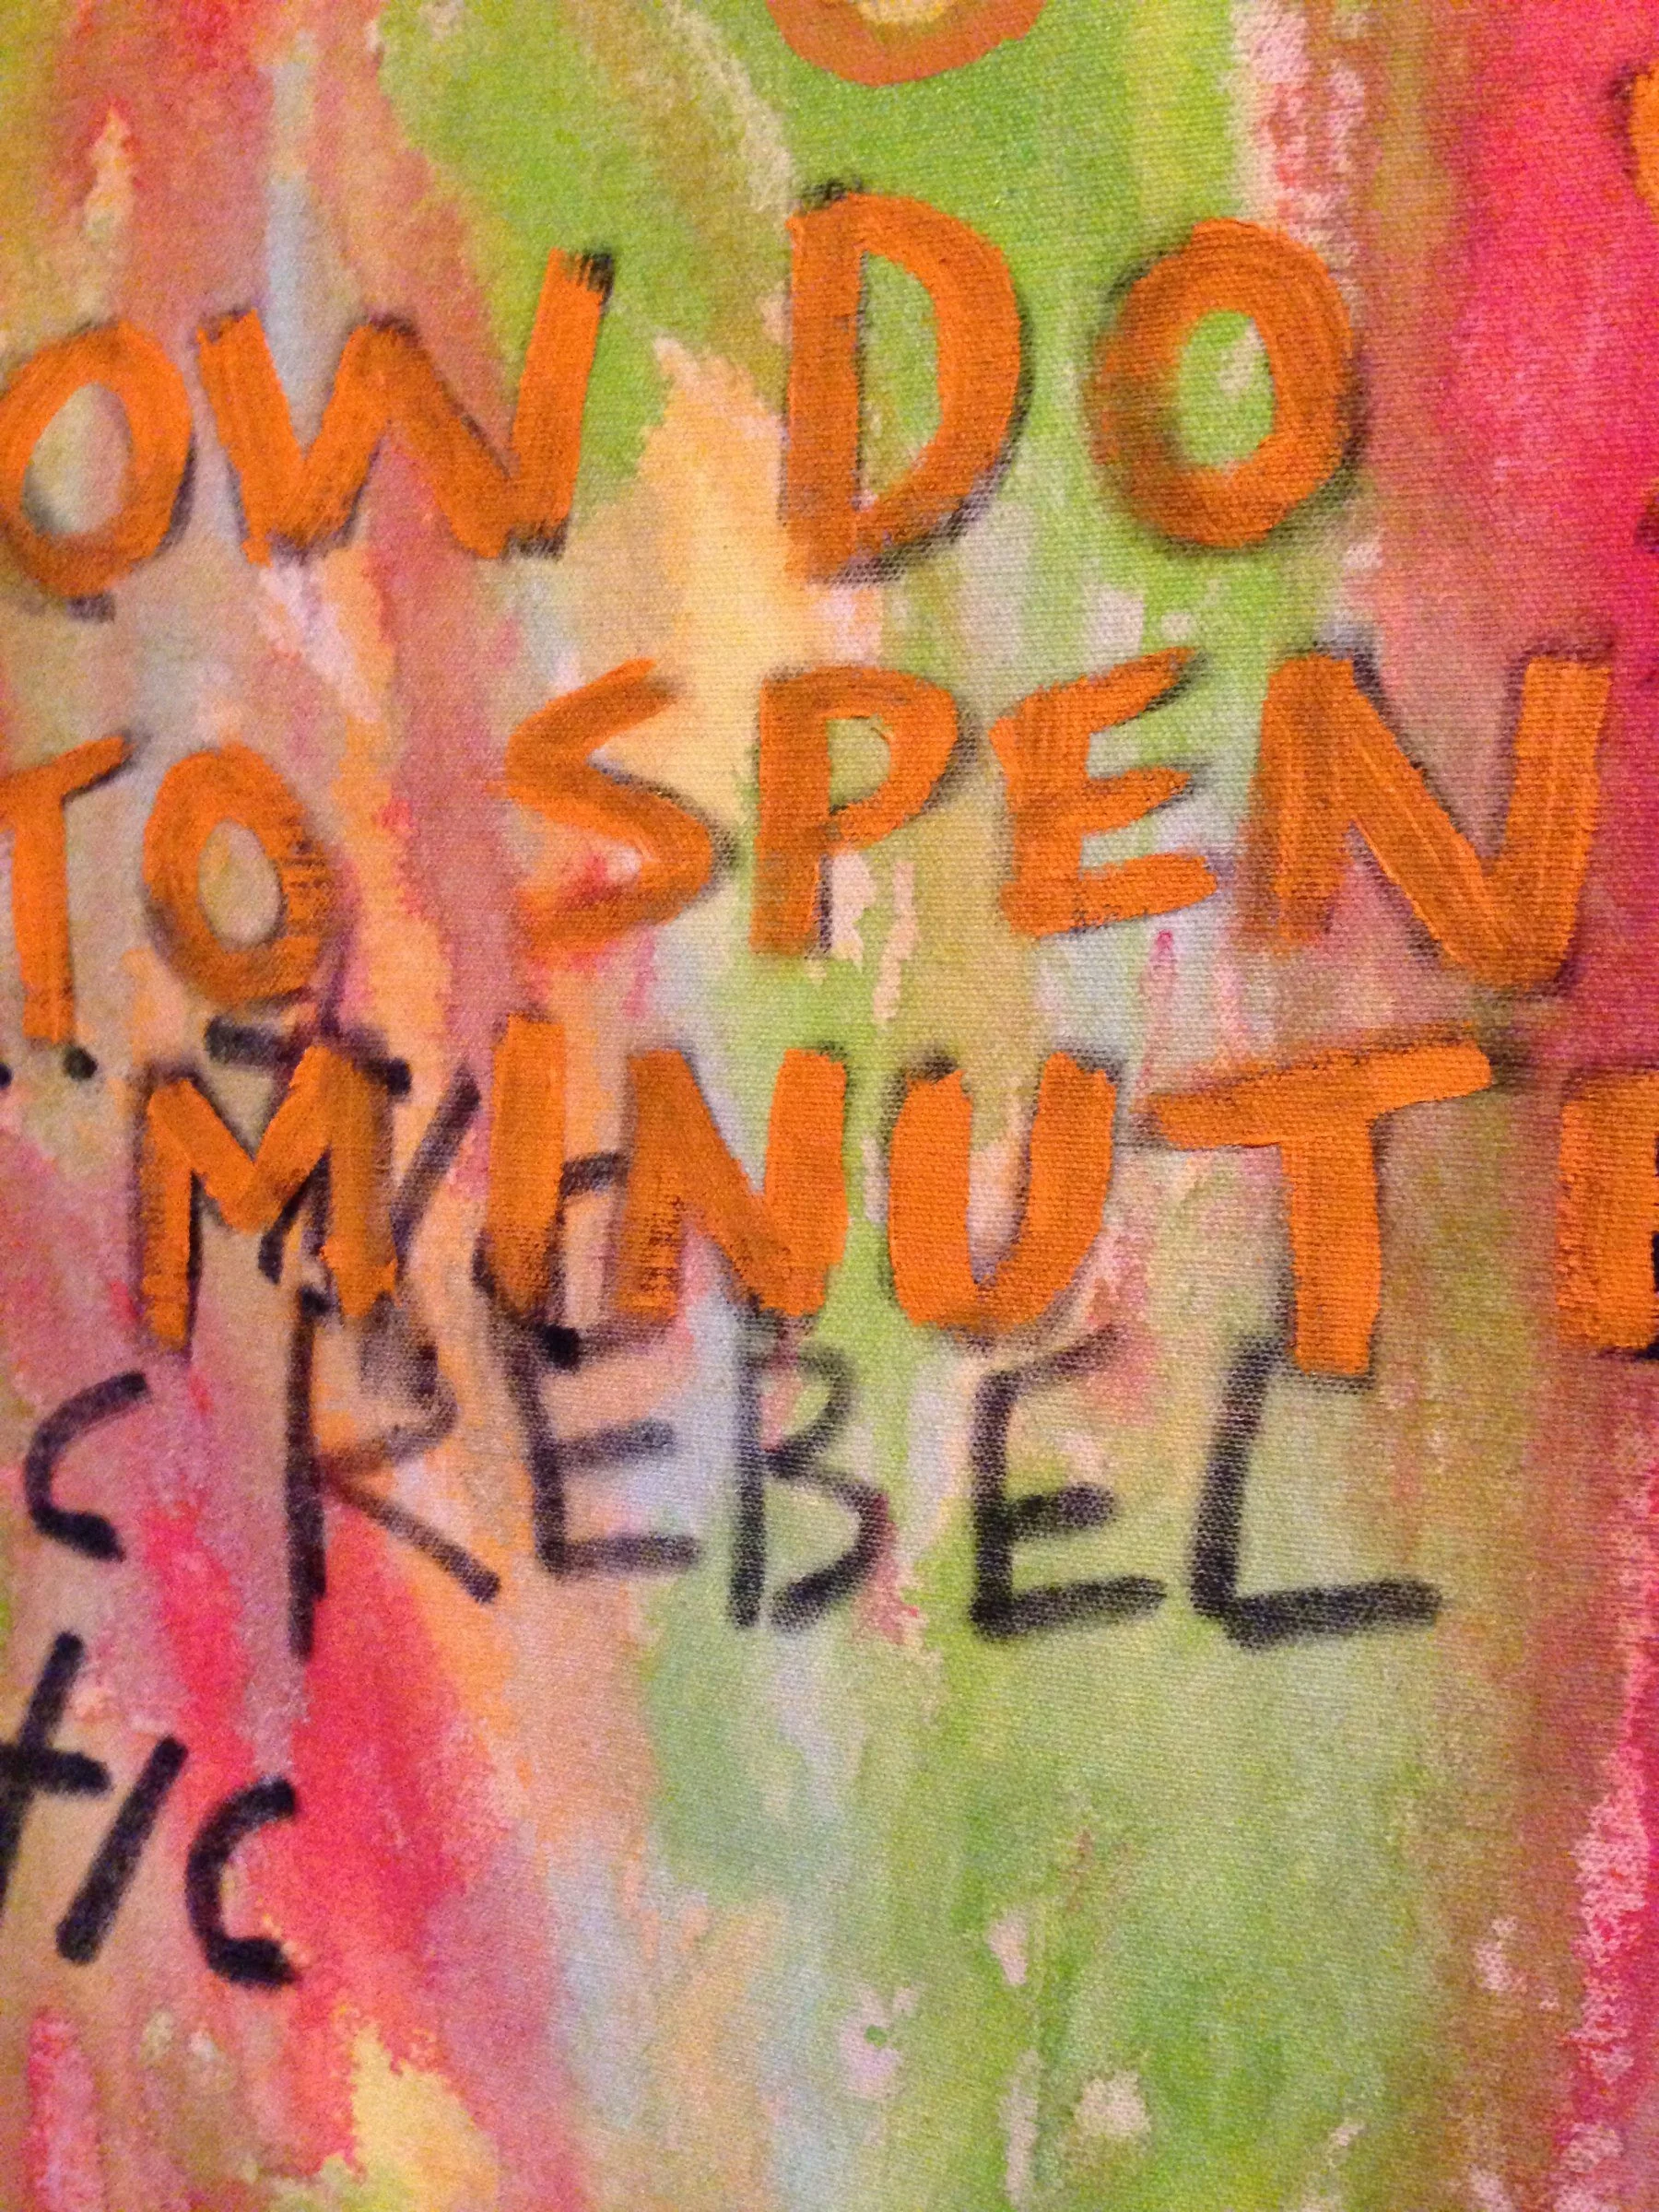 OW DO
TO SPEN
MINUTE
REBEL
tic